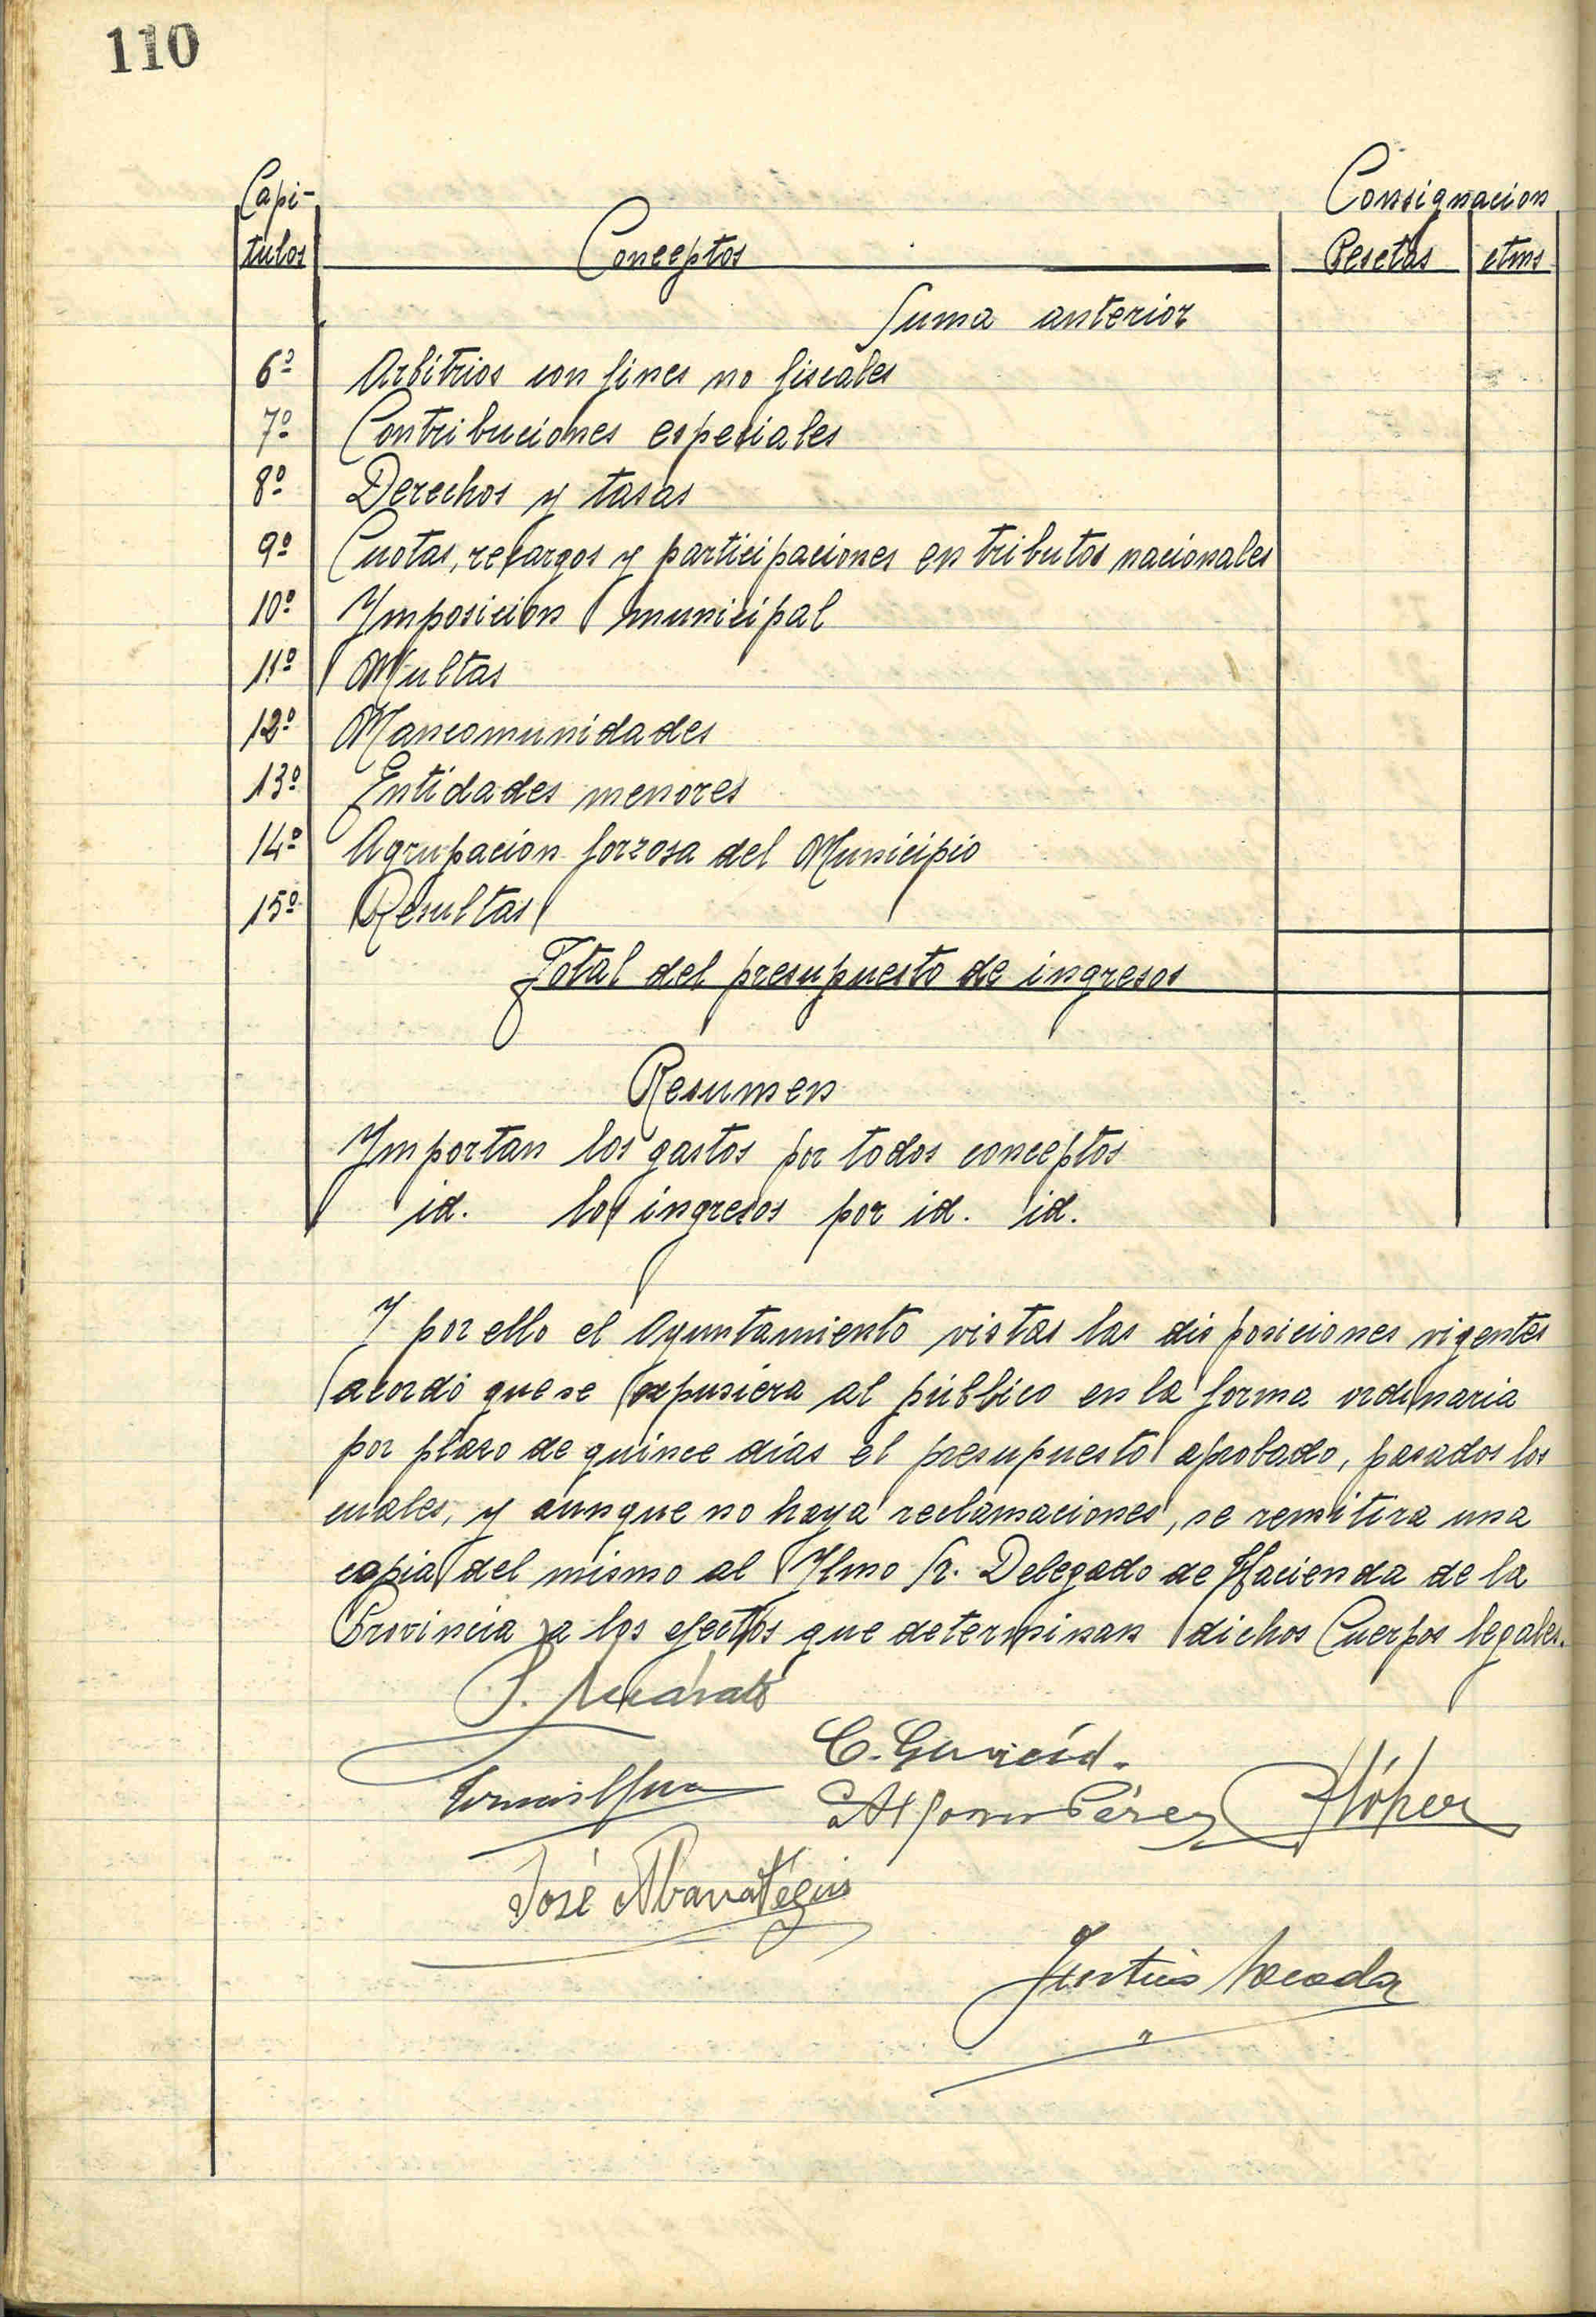 110
Capi-
tulos
Conceptos
Consignacion
Pesetas ctms
Suma anterior
6º Arbitrios con fines no fiscales
7º Contribuciones especiales
8º Derechos y tasas
9º Cuotas, recargos y participaciones en tributos nacionales
10º Imposicion municipal
11º Multas
12º Mancomunidades
13º Entidades menores
14º Agrupacion forzosa del Municipio
15º Resultas
Total del presupuesto de ingresos
Resumen
Importan los gastos por todos conceptos
id. los ingresos por id. id.
Y por ello el Ayuntamiento vistas las disposiciones vigentes
acordó que se expusiera al público en la forma ordinaria
por plazo de quince días el presupuesto aprobado, pasados los
cuales, y aunque no haya reclamaciones, se remitira una
copia del mismo al Ylmo Sr. Delegado de Hacienda de la
Provincia a los efectos que determinan dichos Cuerpos legales.
Alfonso Pérez
José